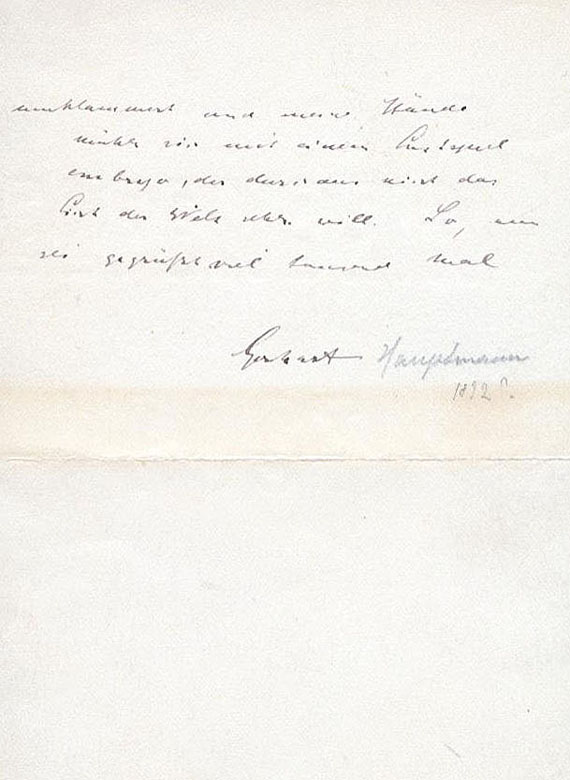 umklammert und meine Hände
mich mit einem Lustspiel
embryo, der durchaus nicht das
Licht der Welt sehen will. So, nun
sei gegrüßt viel tausend Mal
Gerhart Hauptmann
1892?.